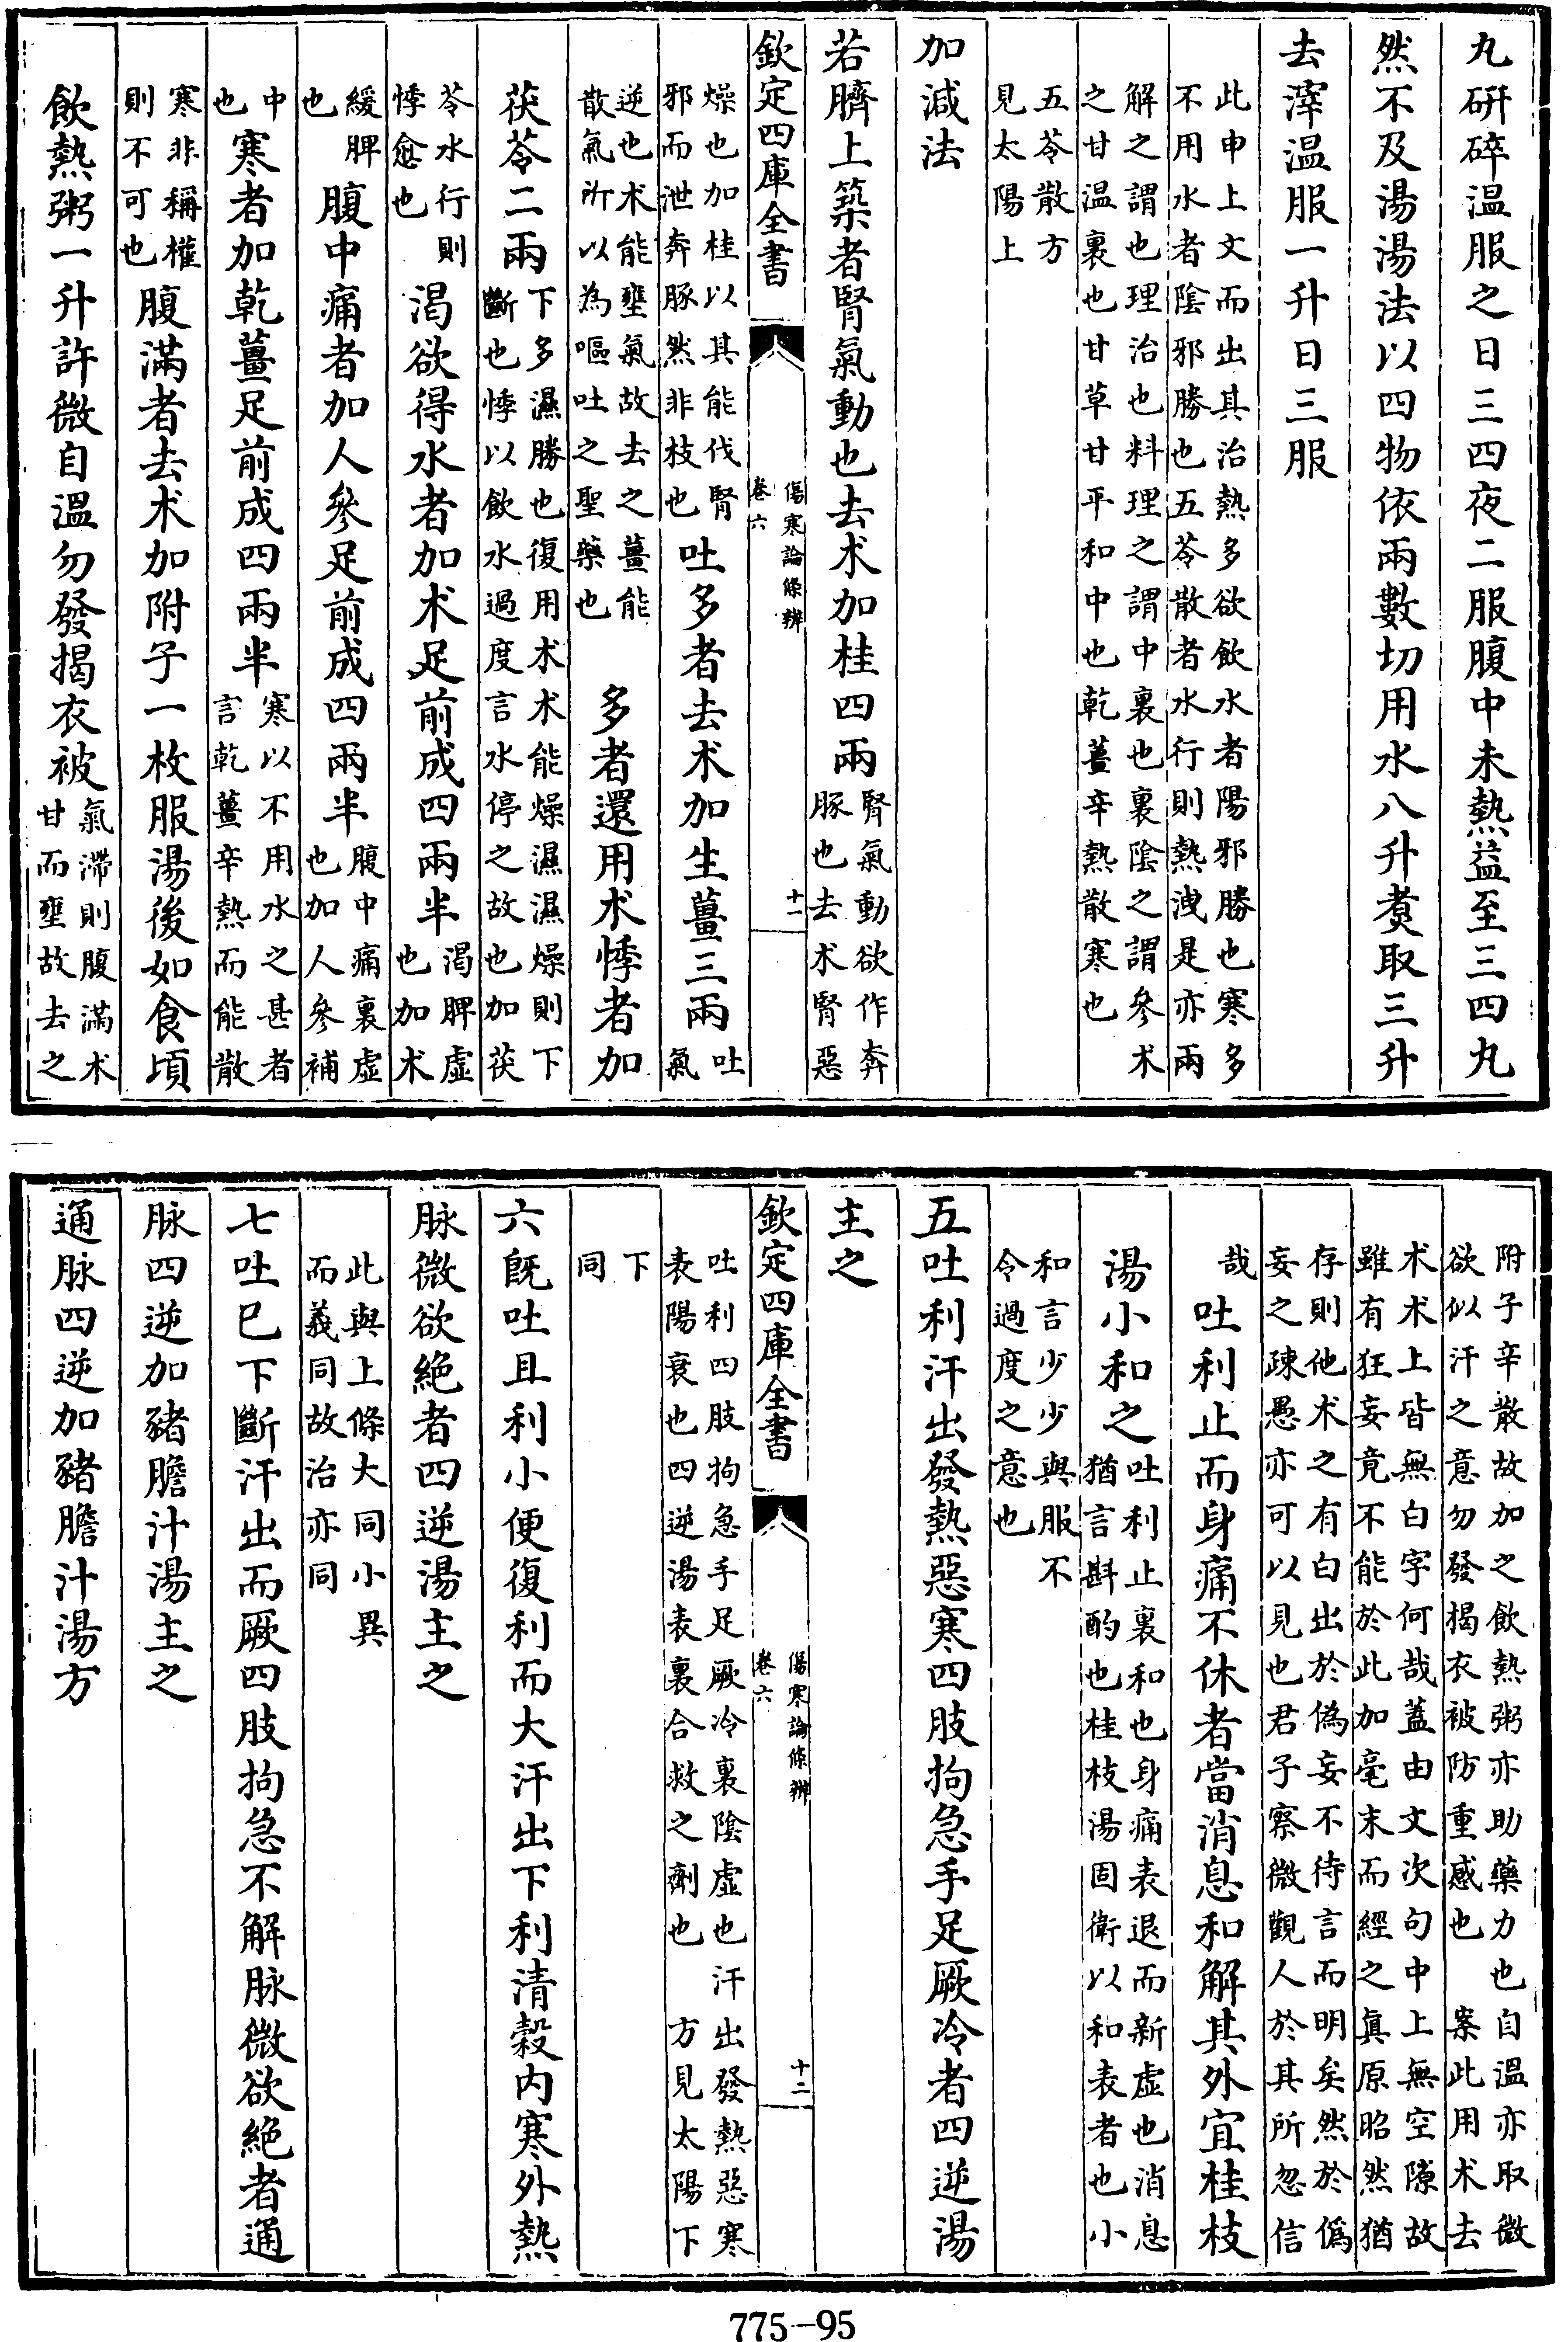 丸研碎温服之日三四夜二服腹中未熱益至三四丸
然不及湯湯法以四物依兩數切用水八升煑取三升
去滓温服一升日三服
此申上文而出其治熱多欲飲水者陽邪勝也寒多
不用水者隂邪勝也五苓散者水行則熱洩是亦兩
解之謂也理治也料理之謂中裏也裏隂之謂參术
之甘温裏也甘草甘平和中也乾薑辛熱散寒也
五苓散方
見太陽上
加減法
若臍上築者腎氣動也去术加桂四兩腎氣動欲作奔豚也去术腎惡
欽定四庫全書
傷寒論條辨
卷六
十一
燥也加桂以其能伐腎邪而泄奔豚然非枝也吐多者去术加生薑三兩吐氣
逆也术能壅氣故去之薑能散氣所以為嘔吐之聖藥也 多者還用术悸者加
茯苓二兩下多濕勝也復用术术能燥濕濕燥則下斷也悸以飲水過度言水停之故也加茯
苓水行則悸愈也渴欲得水者加术足前成四兩半渴脾虛也加术
緩脾也腹中痛者加人參足前成四兩半腹中痛裏虛也加人參補
中也寒者加乾薑足前成四兩半寒以不用水之甚者言乾薑辛熱而能散
寒非稱權則不可也腹滿者去术加附子一枚服湯後如食頃
飲熱粥一升許微自温勿發揭衣被氣滯則腹滿术甘而壅故去之
附子辛散故加之飲熱粥亦助藥力也自温亦取微
欲似汗之意勿發揭衣被防重感也 案此用术去
术术上皆無白字何哉蓋由文次句中上無空隙故
雖有狂妄竟不能於此加毫末而經之真原昭然猶
存則他术之有白出於偽妄不待言而明矣然於僞
妄之疎愚亦可以見也君子察微觀人於其所忽信
哉吐利止而身痛不休者當消息和解其外宜桂枝
湯小和之吐利止裏和也身痛表退而新虛也消息猶言斟酌也桂枝湯固衛以和表者也小
和言少少與服不
令過度之意也
五吐利汗出發熱惡寒四肢拘急手足厥冷者四逆湯
主之
欽定四庫全書
傷寒論條辨
卷六
十二
吐利四肢拘急手足厥冷裏隂虛也汗出發熱惡寒
表陽衰也四逆湯表裏合救之劑也 方見太陽下
下
同
六旣吐且利小便復利而大汗出下利清穀内寒外熱
脉微欲絶者四逆湯主之
此與上條大同小異
而義同故治亦同
七吐已下斷汗出而厥四肢拘急不解脉微欲絶者通
脉四逆加豬膽汁湯主之
通脉四逆加豬膽汁湯方
775-95